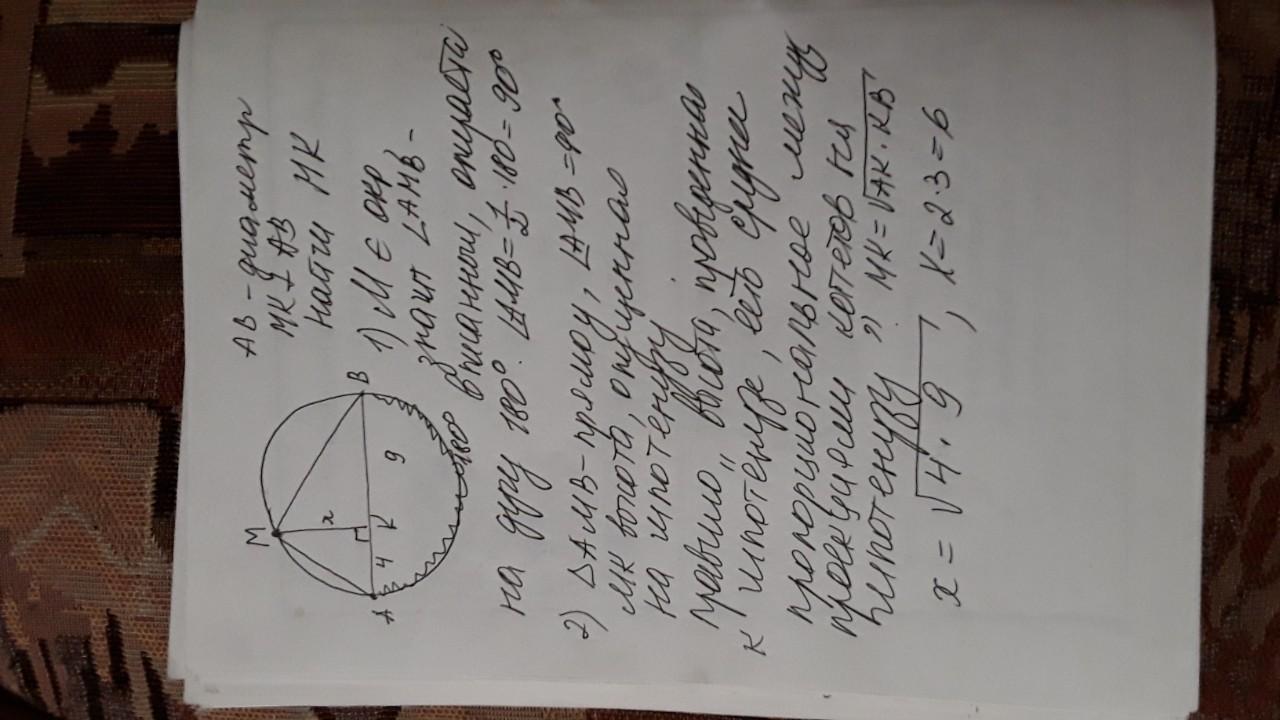 AB - диаметр
MK ⊥ AB
найти MK
M
x
A
4
K
9
B
180°
1) M ∈ окр
значит ∠AMB -
вписанный, опирается
на дугу 180°. ∠AMB = 1/2 · 180 = 90°
2) △AMB - прямоу, ∠AMB = 90°
MK высота, опущенная
на гипотенузу
правило " высота, проведенная
к гипотенузе, есть средне
пропорциональное между
проекциями катетов на
гипотенузу " MK = √AK · KB
x = √4 · 9 , x = 2 · 3 = 6